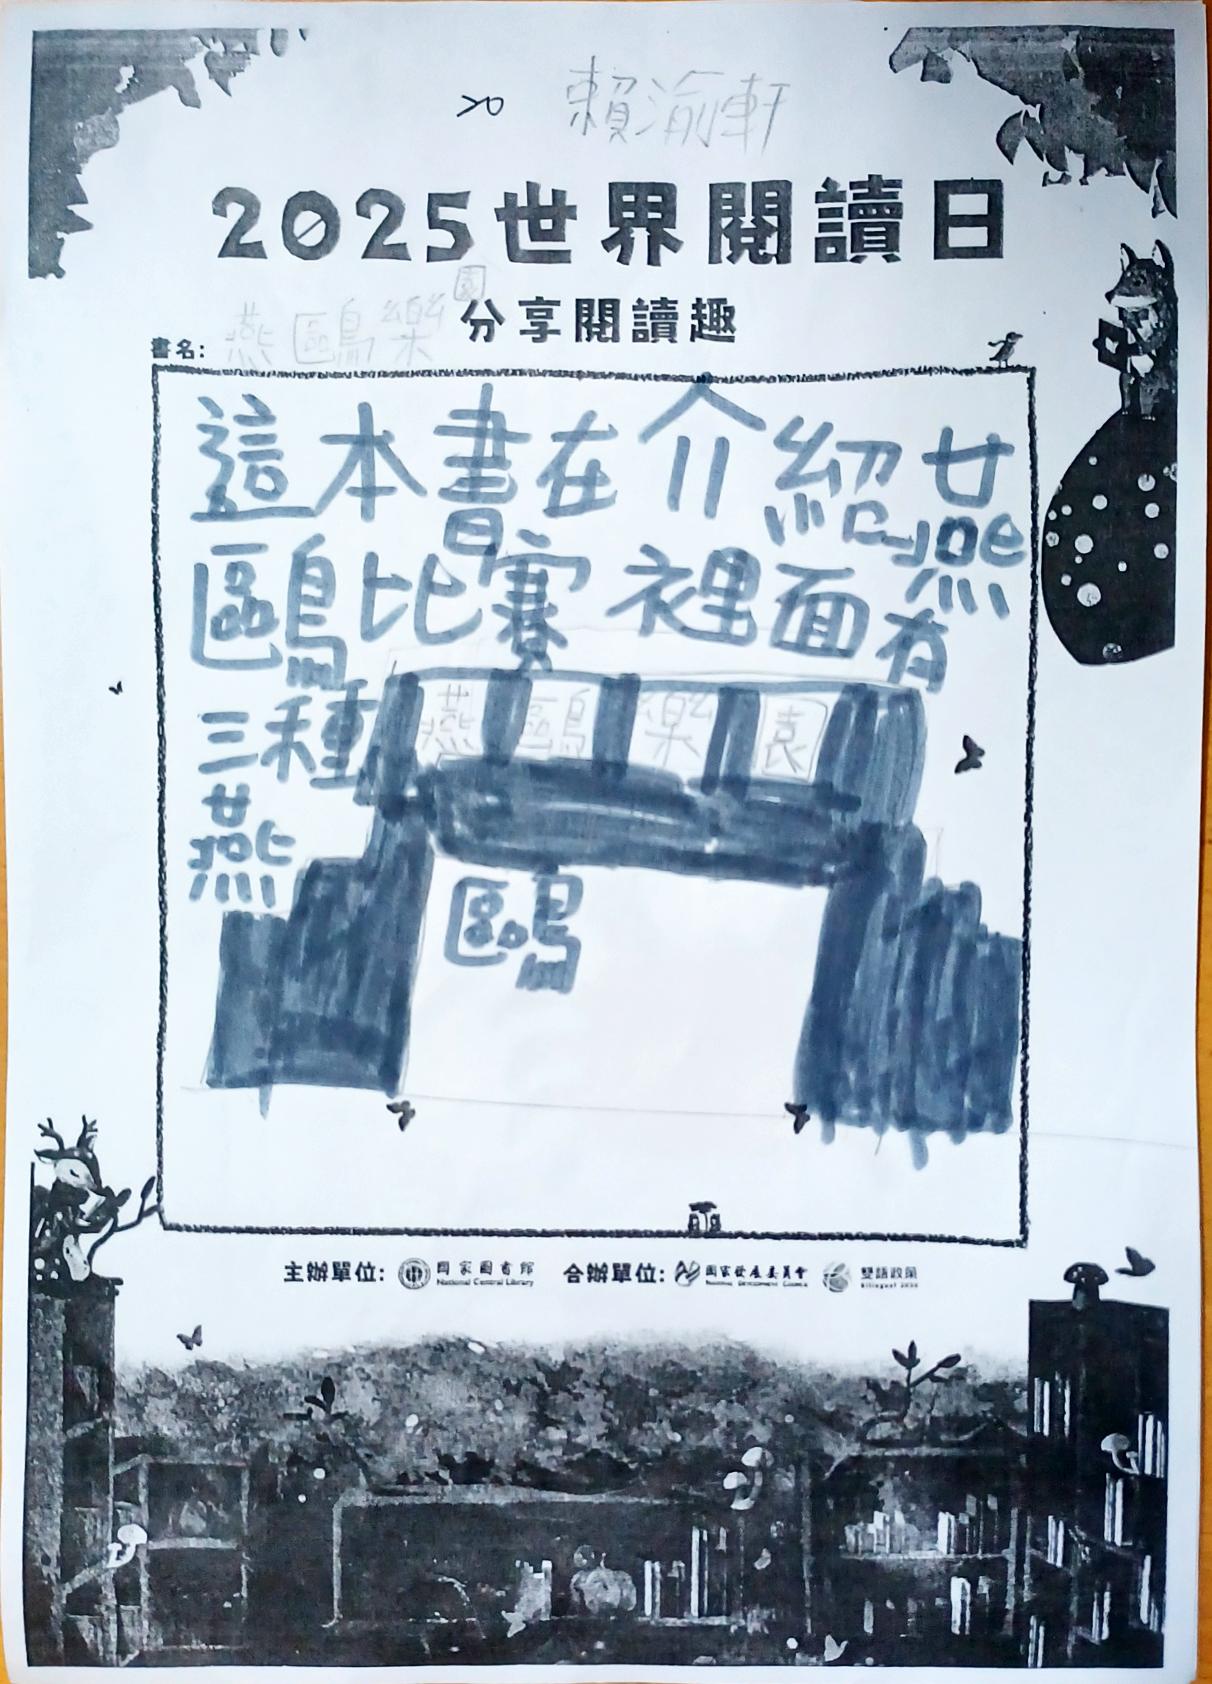 20 賴渝軒
2025世界閱讀日
分享閱讀趣
書名: 燕鷗樂園
這本書在介紹燕
鷗比賽裡面有
三種
燕鷗樂園
燕
鷗
主辦單位: 國家圖書館 National Central Library 合辦單位: 國家發展委員會 NATIONAL DEVELOPMENT COUNCIL 雙語政策 Bilingual 2030